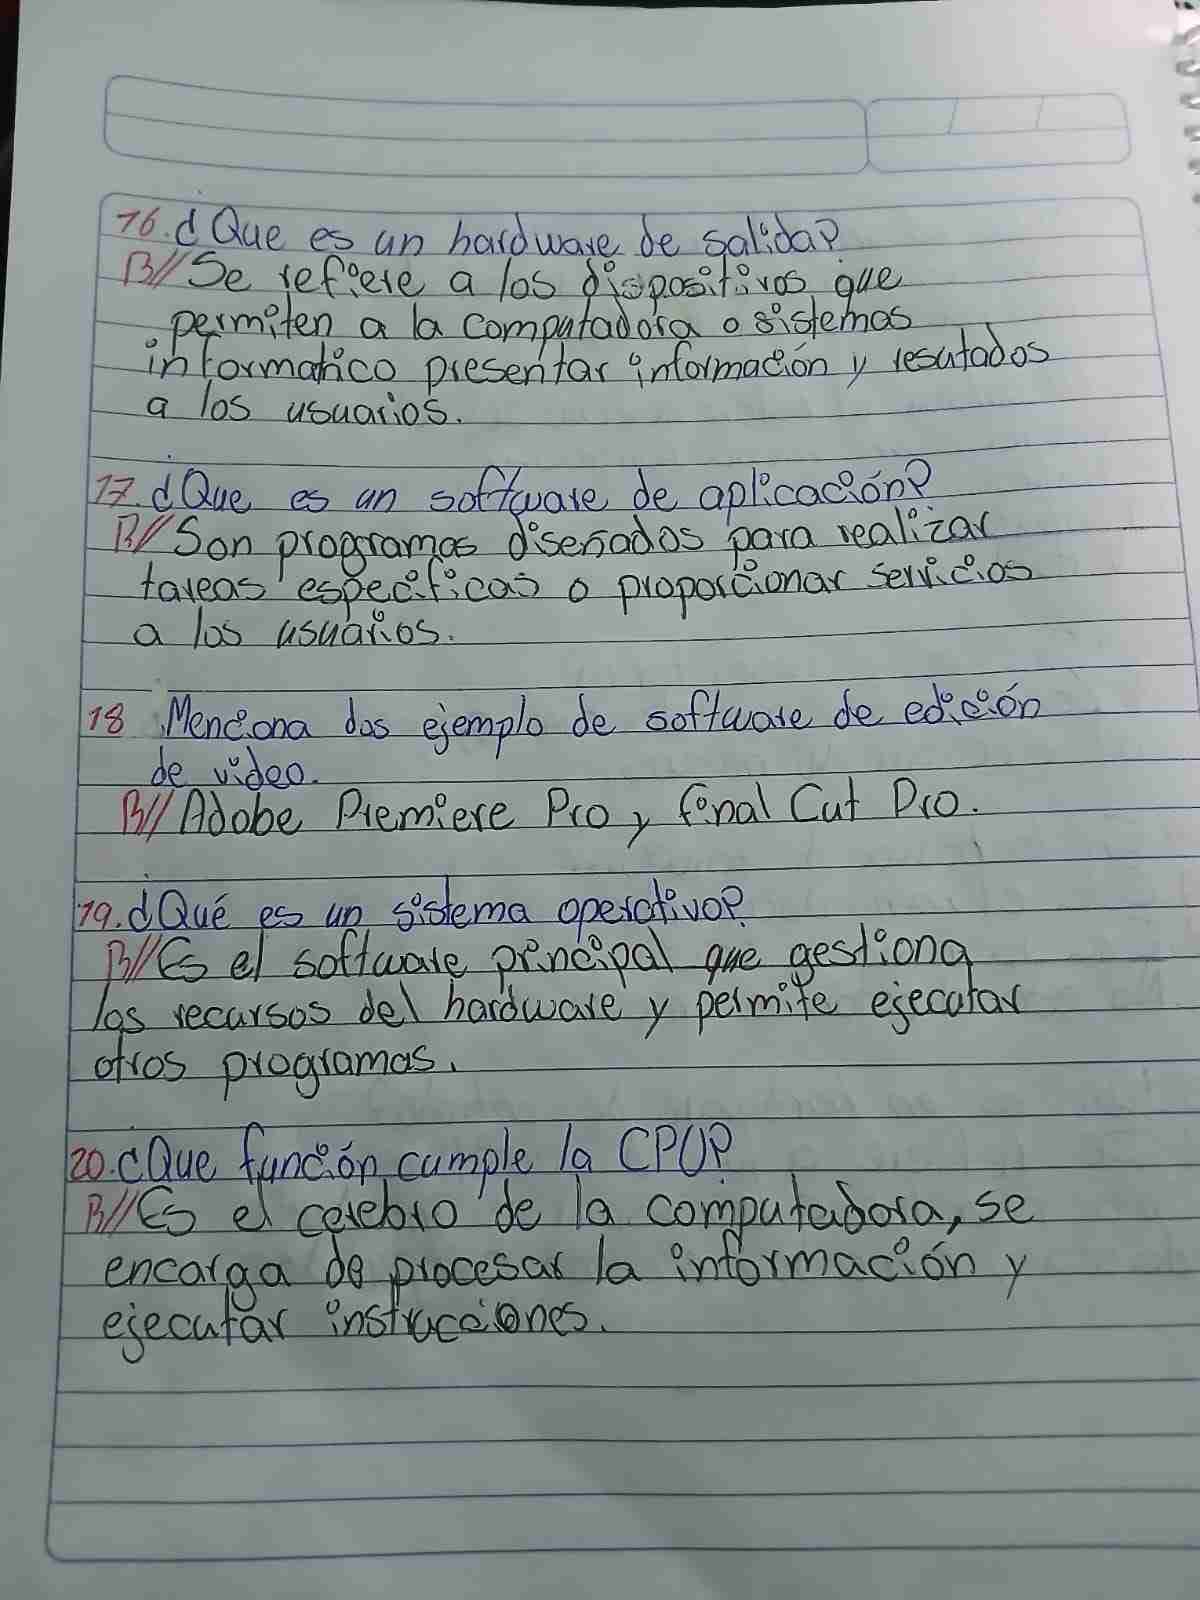 16. ¿Que es un hardware de salida?
R// Se refiere a los dispositivos que
permiten a la computadora o sistemas
informatico presentar información y resutados
a los usuarios.
17. ¿Que es un software de aplicación?
R// Son programas diseñados para realizar
tareas especificas o proporcionar servicios
a los usuarios.
18 Menciona dos ejemplo de software de edición
de video.
R// Adobe Premiere Pro y final Cut Pro.
19. ¿Qué es un sistema operativo?
R// Es el software principal que gestiona
los recursos del hardware y permite ejecutar
otros programas.
20. ¿Que función cumple la CPU?
R// Es el cerebro de la computadora, se
encarga de procesar la información y
ejecutar instrucciones.